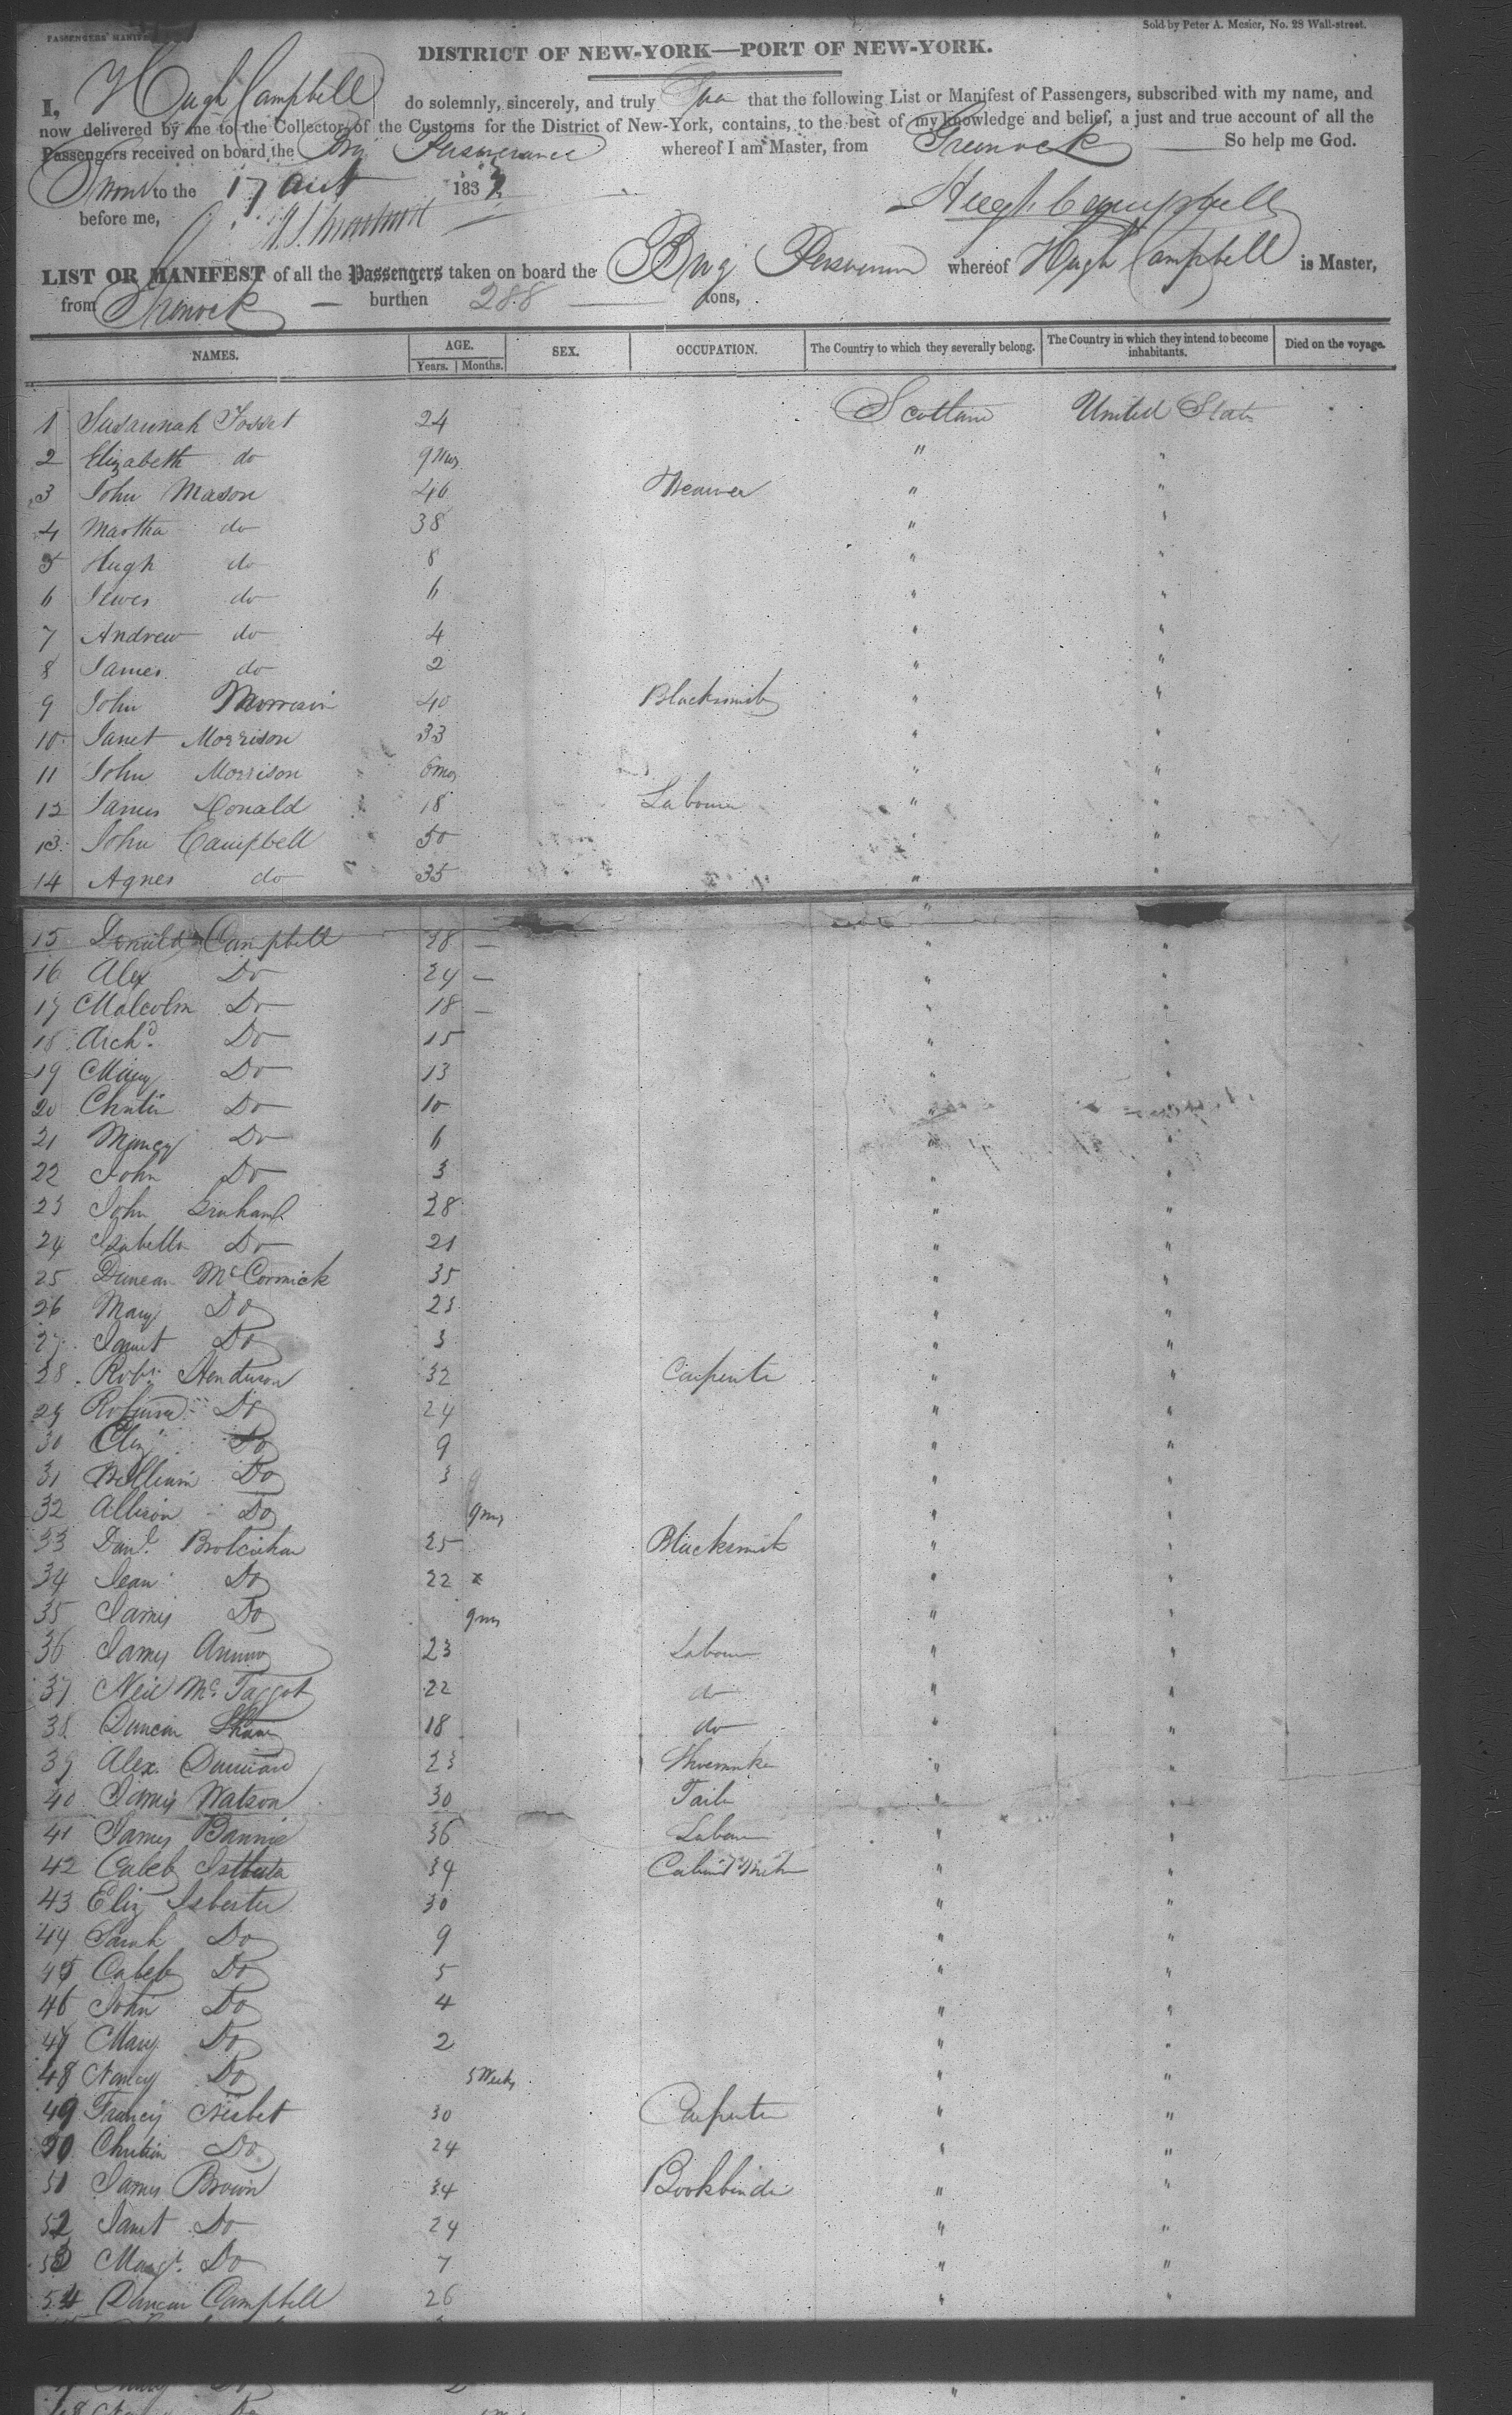 PASSENGERS' MANIFEST
Sold by Peter A. Mesier, No. 28 Wall-street.
DISTRICT OF NEW-YORK—PORT OF NEW-YORK.
I, Hugh Campbell do solemnly, sincerely, and truly that the following List or Manifest of Passengers, subscribed with my name, and
now delivered by me to the Collector of the Customs for the District of New-York, contains, to the best of my knowledge and belief, a just and true account of all the
Passengers received on board the Brig Perseverance whereof I am Master, from Greenock So help me God.
Sworn to the 17 Aust 183
before me, Hugh Campbell
LIST OR MANIFEST of all the Passengers taken on board the Brig whereof Hugh Campbell is Master,
from Greenock burthen 288 tons,
NAMES. AGE. SEX. OCCUPATION. The Country to which they severally belong. The Country in which they intend to become inhabitants. Died on the voyage.
Years. Months.
1 Susannah 24 Scotland United States
2 Elizabeth do 9 Mos " "
3 John Mason 46 Weaver " "
4 Martha do 38 " "
5 Hugh do 8 " "
6 do 6 " "
7 Andrew do 4 " "
8 James do 2 " "
9 John Morrison 40 Blacksmith " "
10 Janet Morrison 33 " "
11 John Morrison 6mos " "
12 James Donald 18 Labourer " "
13 John Campbell 50 " "
14 Agnes do 35 " "
15 Donald Campbell 28 — " "
16 Alex Do 24 — " "
17 Malcolm Do 18 — " "
18 Archd. Do 15 " "
19 Mary Do 13 " "
20 Do 10 " "
21 Do 6 " "
22 John Do 3 " "
23 John 28 " "
24 Isabella Do 21 " "
25 Duncan McCormick 35 " "
26 Mary Do 23 " "
27 Janet Do 3 " "
28 Robt. Henderson 32 Carpenter " "
29 Do 24 " "
30 Eliz Do 9 " "
31 William Do 3 " "
32 Allison Do 9 ms " "
33 Danl. 25 Blacksmith " "
34 Jean Do 22 " "
35 James Do 9 ms " "
36 James 23 Labour " "
37 Neil Mc.Taggot 22 do " "
38 Duncan Shaw 18 do " "
39 Alex. 23 Shoemaker " "
40 James Watson 30 " "
41 James Bannie 36 Labour " "
42 Caleb 34 " "
43 Eliz Isbester 30 " "
44 Sarah Do 9 " "
45 Caleb Do 5 " "
46 John Do 4 " "
47 Mary Do 2 " "
48 Nancy Do 5 Weeks " "
49 Francis Nisbet 30 Carpenter " "
50 Do 24 " "
51 James Brown 34 Bookbinder " "
52 Janet Do 24 " "
53 Margt. Do 7 " "
54 Duncan Campbell 26 " "